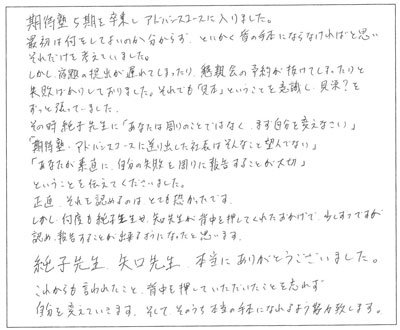 期待塾5期を卒業し アドバンスコースに入りました。
最初は何をしてよいのか分からず、とにかく皆の手本にならなければと思い
それだけを考えていました。
しかし、宿題の提出が遅れてしまったり、懇親会の予約が抜けてしまったりと
失敗ばかりしておりました。それでも「見本」ということを意識し、見栄?を
ずっと張っていました。
その時 純子先生に「あなたは周りのことではなく、まず自分を変えなさい」
「期待塾・アドバンスコースに送り出した社長はそんなこと望んでない」
「あなたが素直に、自分の失敗を周りに報告することが大切」
ということを伝えてくださいました。
正直、それを認めるのは、とても恐かったです。
しかし、何度も純子先生や、矢口先生が背中を押してくれたおかげで、少しずつですが
認め、報告することが出来るようになったと思います。
純子先生、矢口先生、本当にありがとうございました。
これからも言われたこと、背中を押していただいたことを忘れず
自分を変えていきます。そして、そのうち本当の手本になれるよう努力致します。